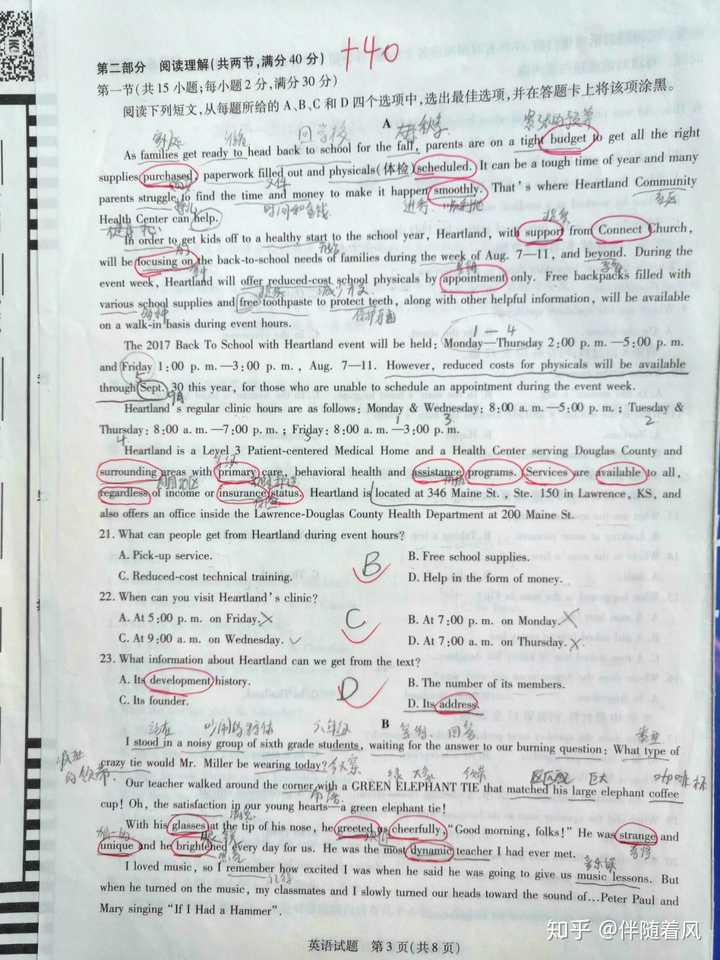 +40
第二部分 阅读理解(共两节,满分40分)
第一节(共15小题;每小题2分,满分30分)
阅读下列短文,从每题所给的A、B、C和D四个选项中,选出最佳选项,并在答题卡上将该项涂黑。
A
As families get ready to head back to school for the fall, parents are on a tight budget to get all the right
supplies purchased, paperwork filled out and physicals(体检)scheduled. It can be a tough time of year and many
parents struggle to find the time and money to make it happen smoothly. That's where Heartland Community
Health Center can help.
In order to get kids off to a healthy start to the school year, Heartland, with support from Connect Church,
will be focusing on the back-to-school needs of families during the week of Aug. 7—11, and beyond. During the
event week, Heartland will offer reduced-cost school physicals by appointment only. Free backpacks filled with
various school supplies and free toothpaste to protect teeth, along with other helpful information, will be available
on a walk-in basis during event hours.
The 2017 Back To School with Heartland event will be held: Monday—Thursday 2:00 p. m. —5:00 p. m.
and Friday 1:00 p. m. —3:00 p. m. , Aug. 7—11. However, reduced costs for physicals will be available
through Sept. 30 this year, for those who are unable to schedule an appointment during the event week.
Heartland's regular clinic hours are as follows: Monday & Wednesday: 8:00 a. m. —5:00 p. m. ; Tuesday &
Thursday: 8:00 a. m. —7:00 p. m. ; Friday: 8:00 a. m. —3:00 p. m.
Heartland is a Level 3 Patient-centered Medical Home and a Health Center serving Douglas County and
surrounding areas with primary care, behavioral health and assistance programs. Services are available to all,
regardless of income or insurance status. Heartland is located at 346 Maine St. , Ste. 150 in Lawrence, KS, and
also offers an office inside the Lawrence-Douglas County Health Department at 200 Maine St.
21. What can people get from Heartland during event hours?
A. Pick-up service. B. Free school supplies.
C. Reduced-cost technical training. D. Help in the form of money.
B
22. When can you visit Heartland's clinic?
A. At 5:00 p. m. on Friday. B. At 7:00 p. m. on Monday.
C. At 9:00 a. m. on Wednesday. D. At 7:00 a. m. on Thursday.
C
23. What information about Heartland can we get from the text?
A. Its development history. B. The number of its members.
C. Its founder. D. Its address.
D
B
I stood in a noisy group of sixth grade students, waiting for the answer to our burning question: What type of
crazy tie would Mr. Miller be wearing today?
Our teacher walked around the corner with a GREEN ELEPHANT TIE that matched his large elephant coffee
cup! Oh, the satisfaction in our young hearts—a green elephant tie!
With his glasses at the tip of his nose, he greeted us cheerfully, "Good morning, folks!" He was strange and
unique and he brightened every day for us. He was the most dynamic teacher I had ever met.
I loved music, so I remember how excited I was when he said he was going to give us music lessons. But
when he turned on the music, my classmates and I slowly turned our heads toward the sound of…Peter Paul and
Mary singing "If I Had a Hammer".
英语试题 第3页(共8页)
知乎 @伴随着风